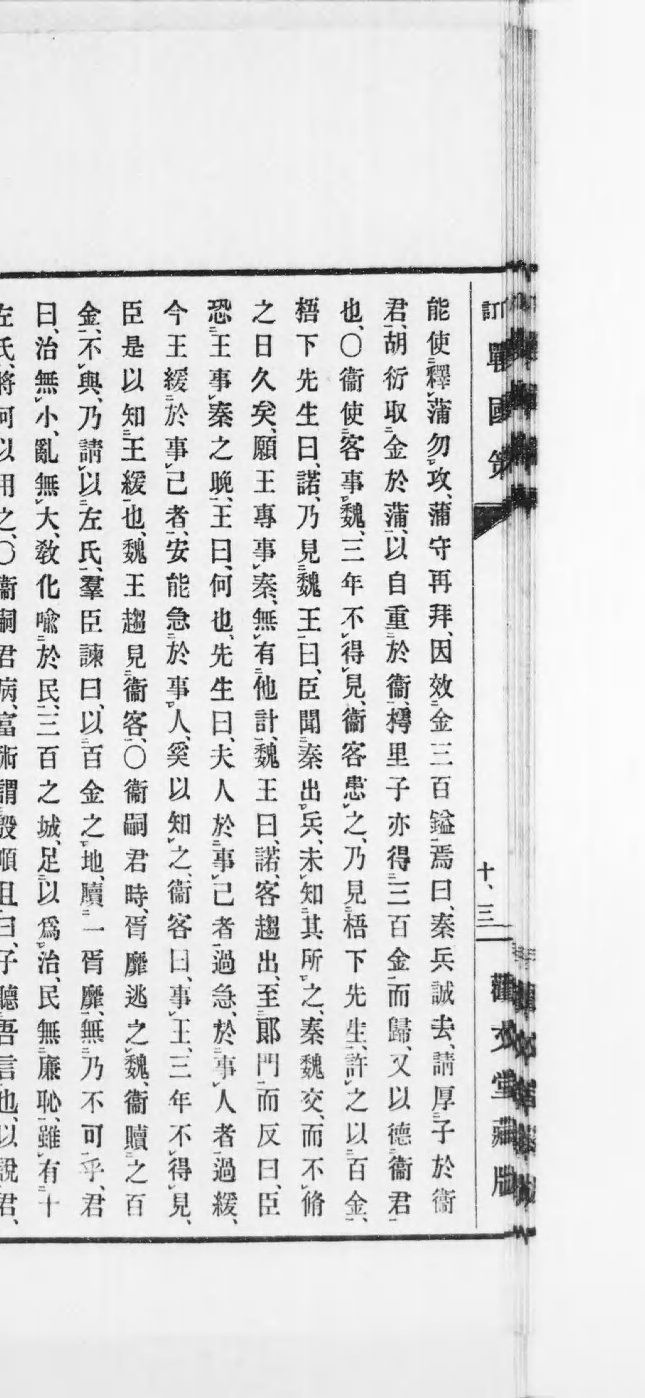 訂戰國策
十、三
能使釋蒲勿攻、蒲守再拜、因效金三百鎰焉曰、秦兵誠去、請厚子於衞
君、胡衍取金於蒲、以自重於衞、樗里子亦得三百金而歸、又以德衞君
也、〇衞使客事魏、三年不得見、衞客患之、乃見梧下先生、許之以百金、
梧下先生曰、諾、乃見魏王曰、臣聞秦出兵、未知其所之、秦魏交、而不脩
之日久矣、願王專事秦、無有他計、魏王曰、諾、客趨出、至郞門而反曰、臣
恐王事秦之晚、王曰、何也、先生曰、夫人於事己者過急、於事人者過緩、
今王緩於事己者、安能急於事人、奚以知之、衞客曰、事王、三年不得見、
臣是以知王緩也、魏王趨見衞客、〇衞嗣君時、胥靡逃之魏、衞贖之百
金、不與、乃請以左氏、羣臣諫曰、以百金之地、贖一胥靡、無乃不可乎、君
曰、治無小、亂無大、敎化喩於民、三百之城、足以爲治、民無廉恥、雖有十
左氏、將何以用之、〇衞嗣君病、富術謂殷順且曰、子聽吾言也、以說君、